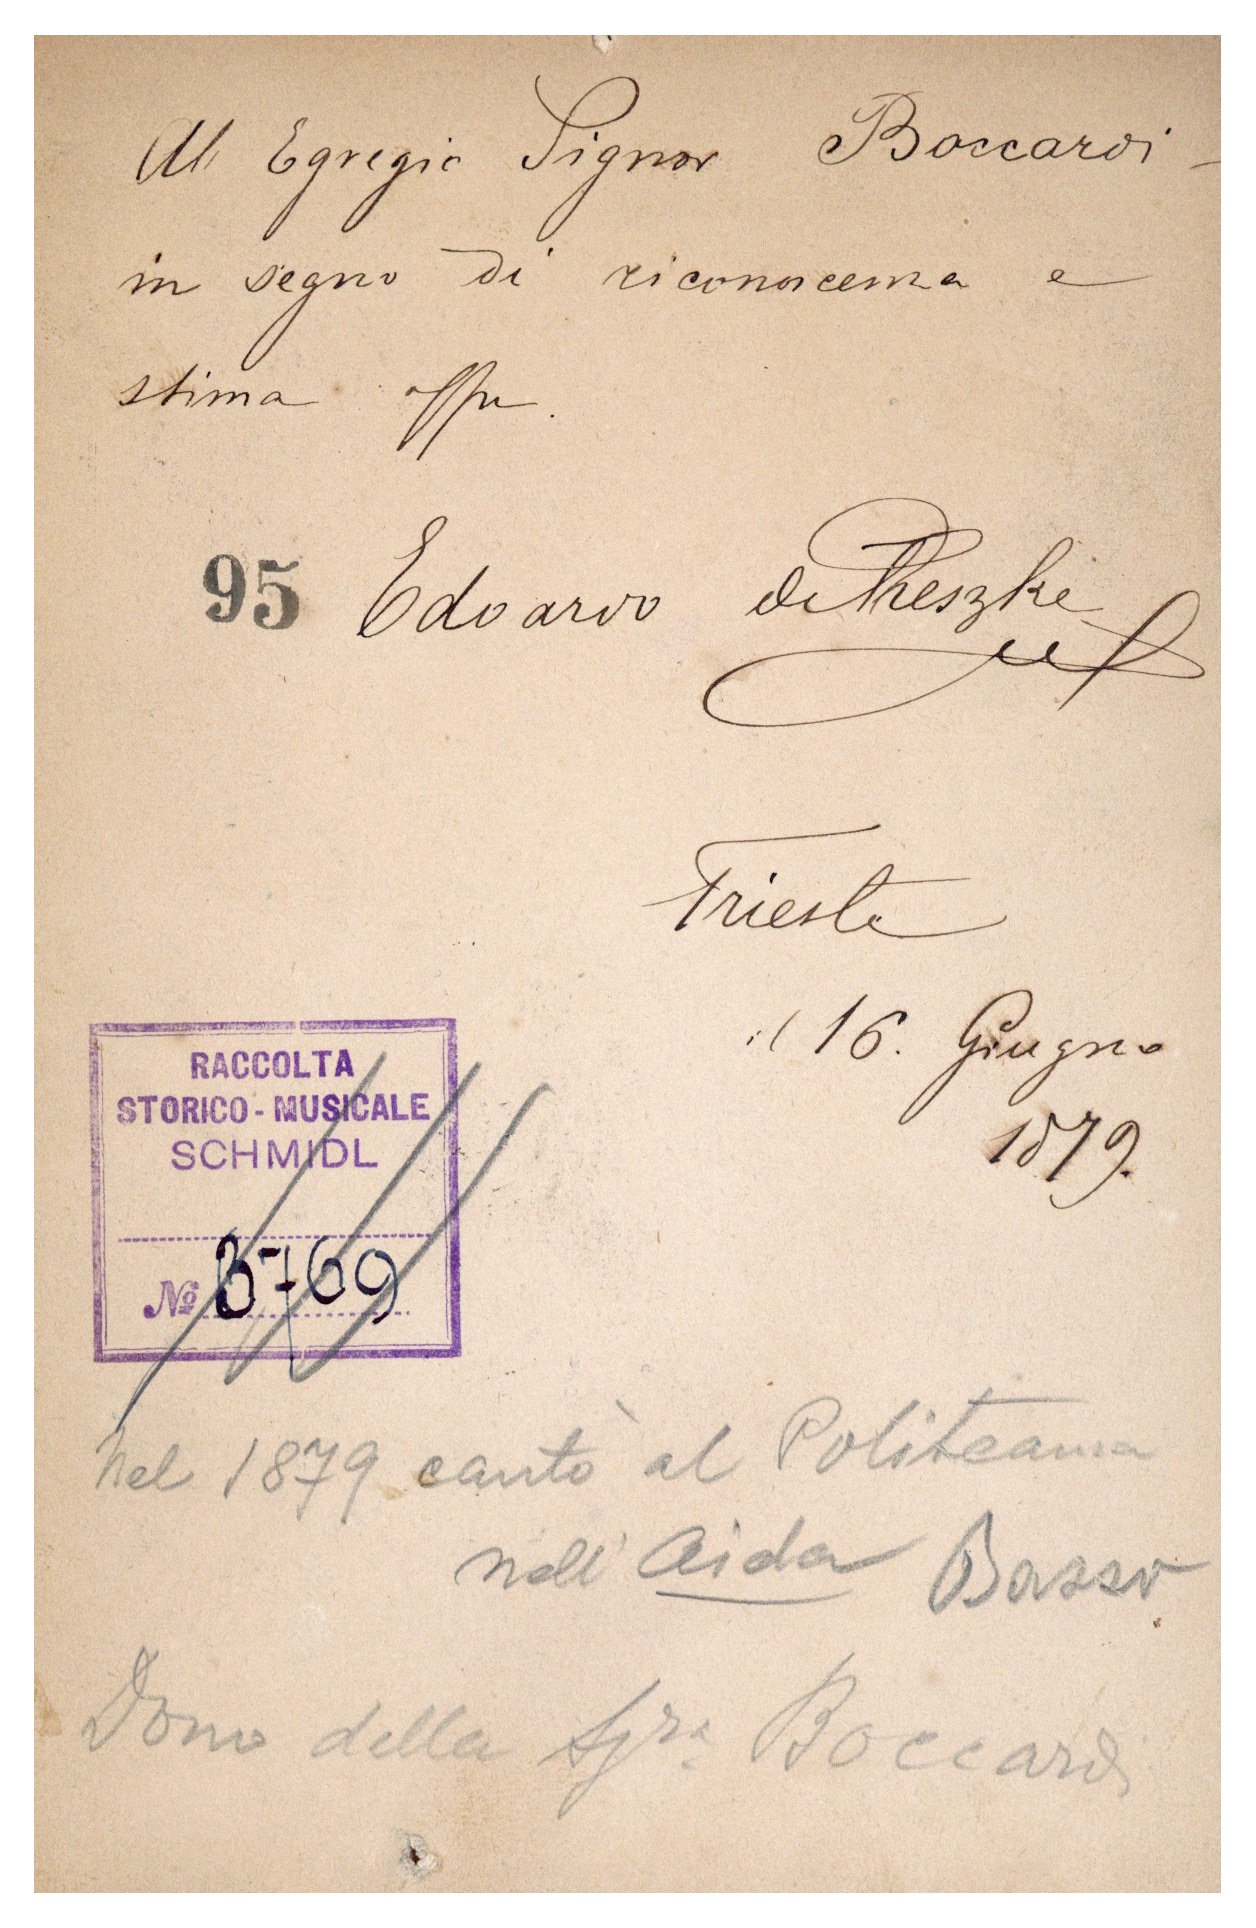 Al Egregio Signor Boccardi -
in segno di riconoscenza e
stima offre.
95 Edoardo de Reszke
Trieste
il 16. Giugno
1879.
RACCOLTA
STORICO - MUSICALE
SCHMIDL
No 3769
Nel 1879 cantò al Politeama
nell' Aida Basso
Dono della Sjra Boccardi